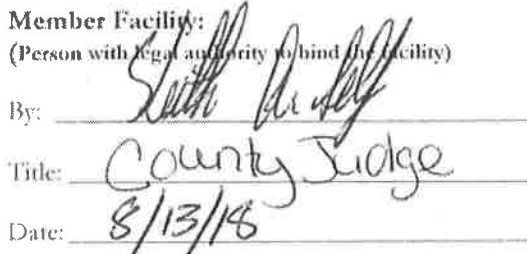 Member Facility:
(Person with legal authority to bind the facility)
By: Keith
Title: County Judge
Date: 8/13/18